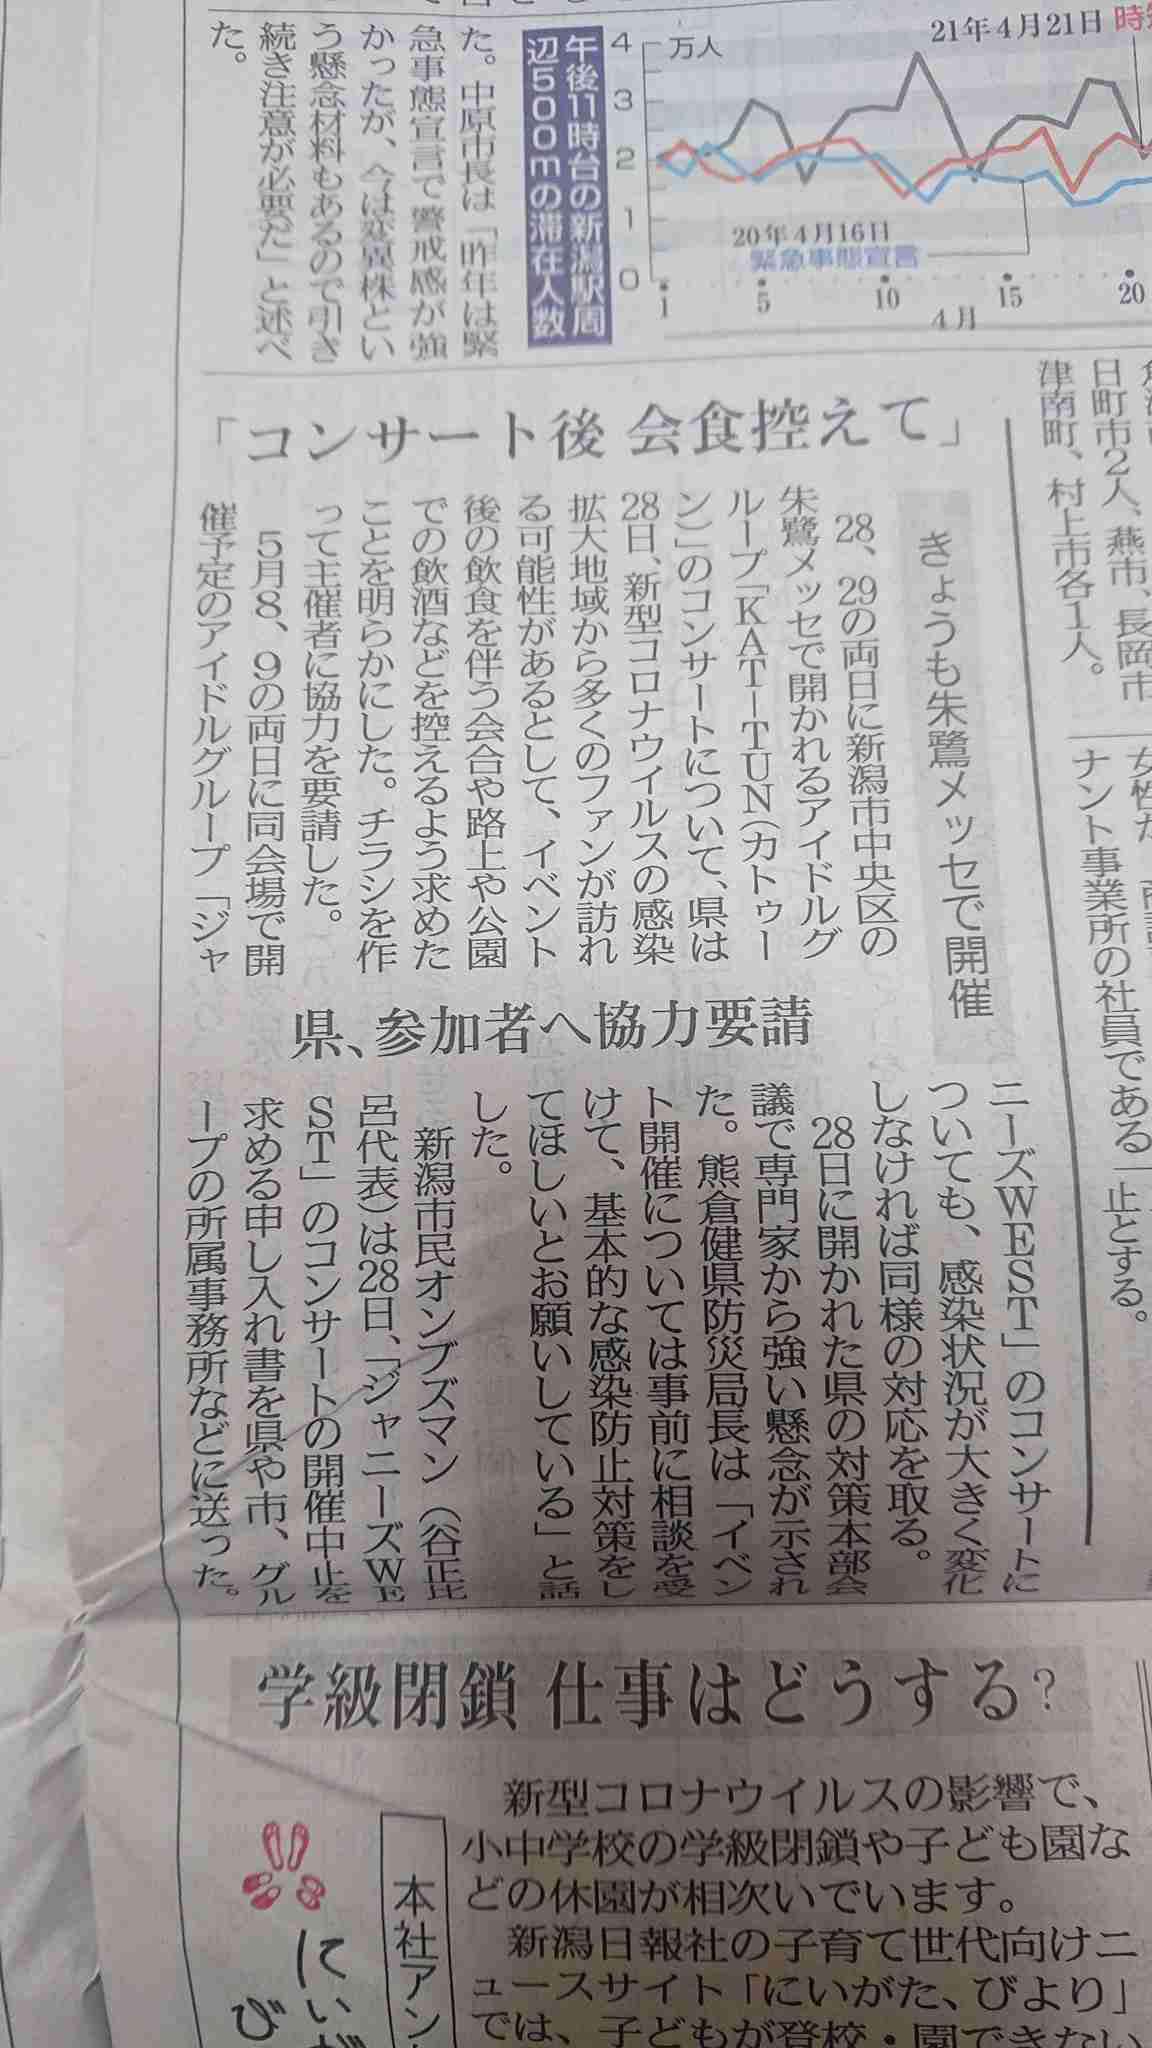 21年4月21日 時短
4
万人
3
2
1
0
20年4月16日
緊急事態宣言
1
5
10
15
20
4月
午後11時台の新潟駅周
辺500mの滞在人数
た。中原市長は「昨年は緊
急事態宣言で警戒感が強
かったが、今は変異株とい
う懸念材料もあるので引き
続き注意が必要だ」と述べ
た。
日町市2人、燕市、長岡市
津南町、村上市各1人。
ナント事業所の社員である
止とする。
「コンサート後 会食控えて」
きょうも朱鷺メッセで開催
28、29の両日に新潟市中央区の
朱鷺メッセで開かれるアイドルグ
ループ「KAT-TUN(カトゥー
ン)」のコンサートについて、県は
28日、新型コロナウイルスの感染
拡大地域から多くのファンが訪れ
る可能性があるとして、イベント
後の飲食を伴う会合や路上や公園
での飲酒などを控えるよう求めた
ことを明らかにした。チラシを作
って主催者に協力を要請した。
5月8、9の両日に同会場で開
催予定のアイドルグループ「ジャ
県、参加者へ協力要請
ニーズWEST」のコンサートに
ついても、感染状況が大きく変化
しなければ同様の対応を取る。
28日に開かれた県の対策本部会
議で専門家から強い懸念が示され
た。熊倉健県防災局長は「イベン
ト開催については事前に相談を受
けて、基本的な感染防止対策をし
てほしいとお願いしている」と話
した。
新潟市民オンブズマン(谷正比
呂代表)は28日、「ジャニーズWE
ST」のコンサートの開催中止を
求める申し入れ書を県や市、グル
ープの所属事務所などに送った。
学級閉鎖 仕事はどうする?
新型コロナウイルスの影響で、
小中学校の学級閉鎖や子ども園な
どの休園が相次いでいます。
新潟日報社の子育て世代向けニ
ュースサイト「にいがた、びより」
では、子どもが登校・園できない
本社アン
にいが
び